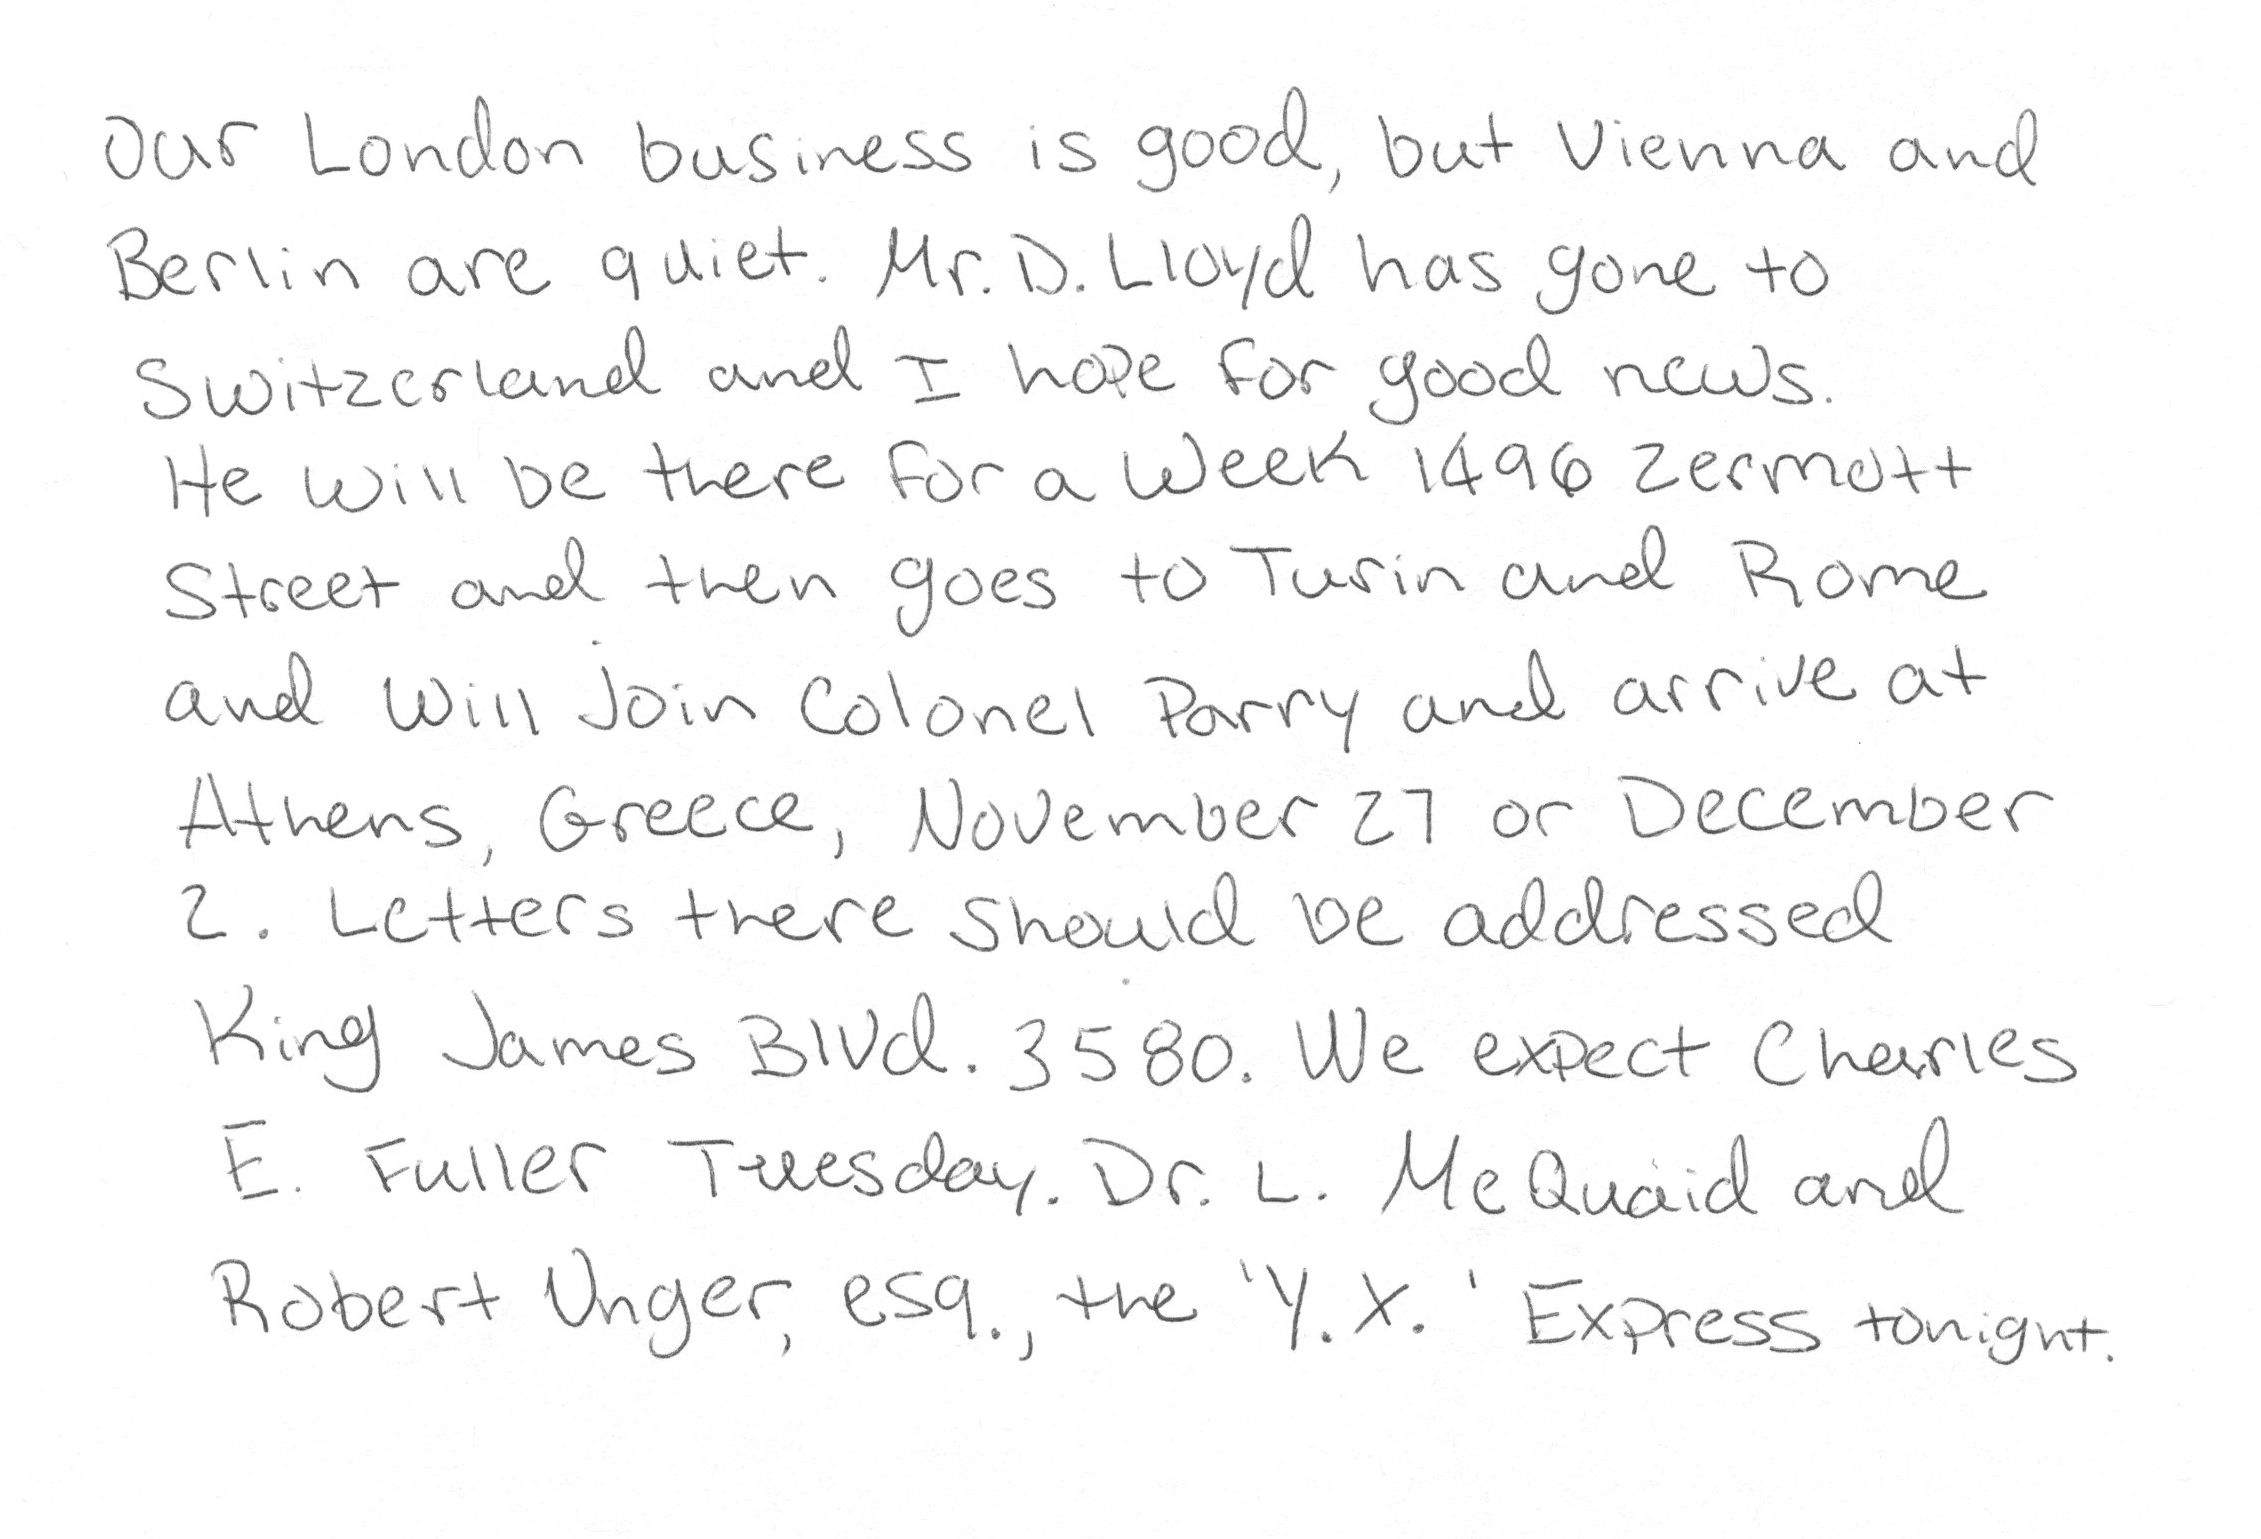 Our London business is good, but Vienna and
Berlin are quiet. Mr. D. Lloyd has gone to
Switzerland and I hope for good news.
He will be there for a week 1496 Zermott
Street and then goes to Turin and Rome
and will join Colonel Parry and arrive at
Athens, Greece, November 27 or December
2. Letters there should be addressed
King James Blvd. 3580. We expect Charles
E. Fuller Tuesday. Dr. L. McQuaid and
Robert Unger, esq., the 'Y.X.' Express tonight.